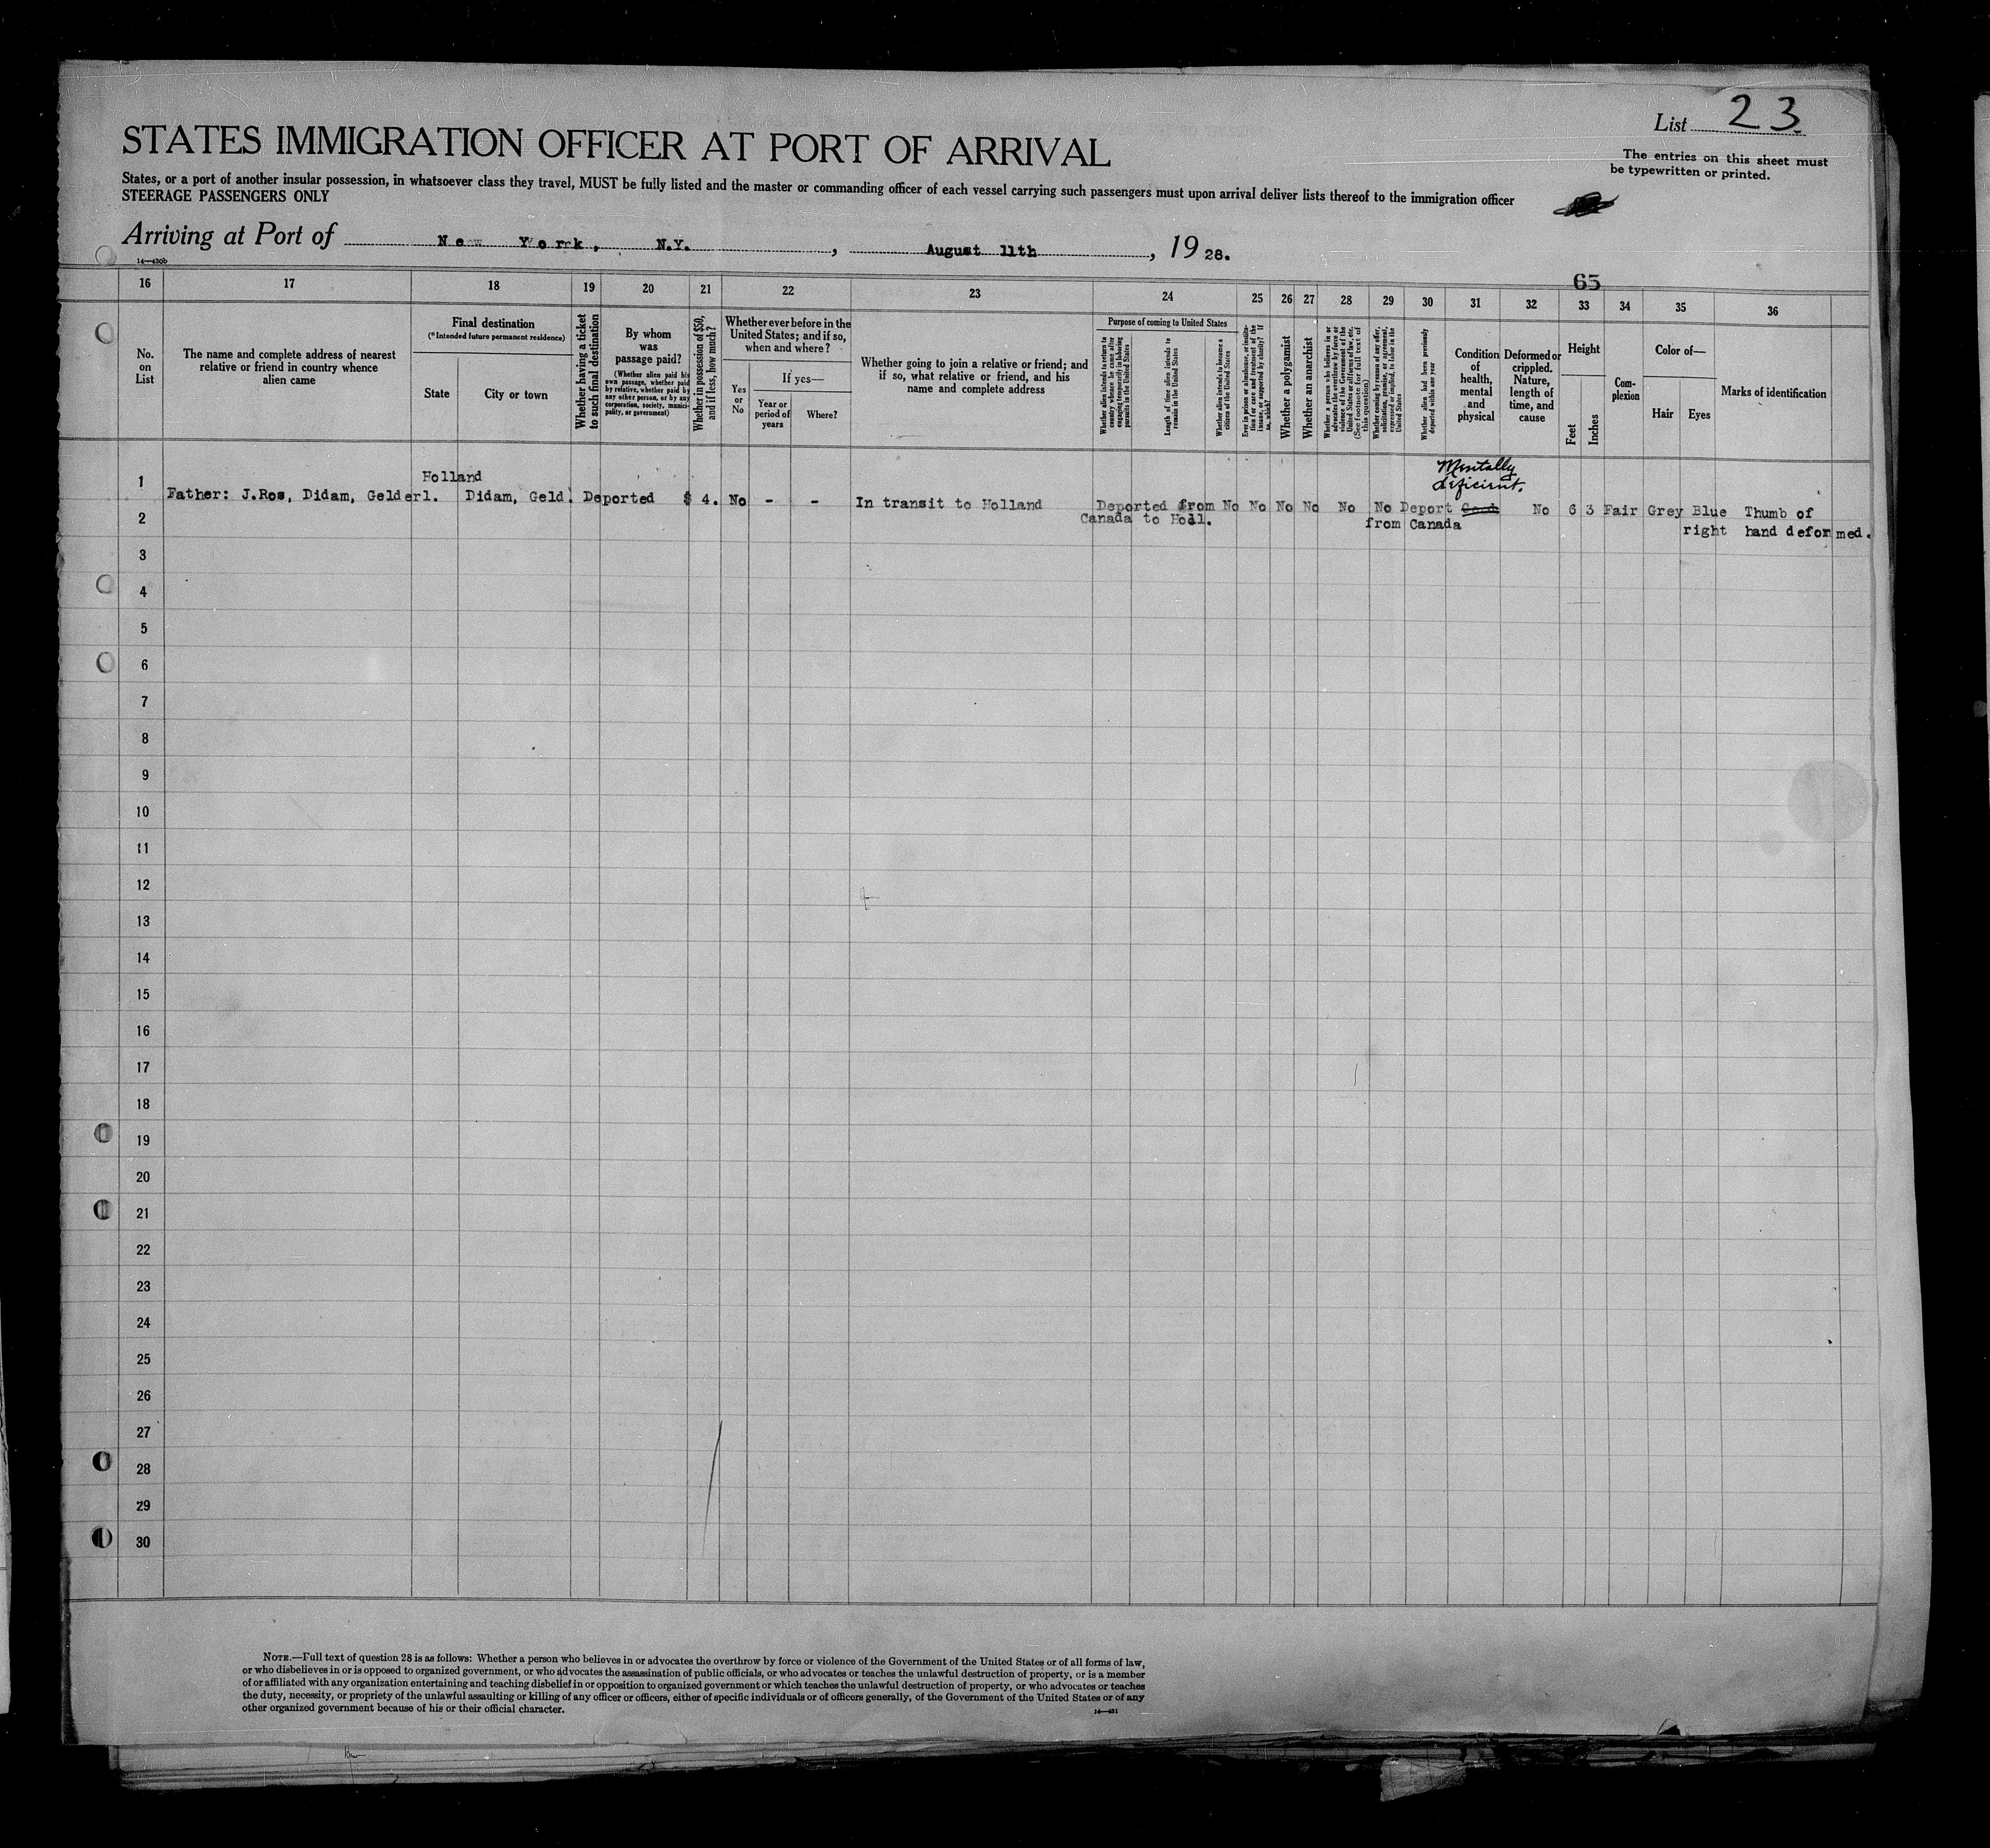 List 23
STATES IMMIGRATION OFFICER AT PORT OF ARRIVAL
The entries on this sheet must
be typewritten or printed.
States, or a port of another insular possession, in whatsoever class they travel, MUST be fully listed and the master or commanding officer of each vessel carrying such passengers must upon arrival deliver lists thereof to the immigration officer
STEERAGE PASSENGERS ONLY
Arriving at Port of New York, N.Y. , August 11th , 19 28.
14—430b
65
16 17 18 19 20 21 22 23 24 25 26 27 28 29 30 31 32 33 34 35 36
No.
on
List
The name and complete address of nearest
relative or friend in country whence
alien came
Final destination
(*Intended future permanent residence)
State
City or town
Whether having a ticket
to such final destination
By whom
was
passage paid?
(Whether alien paid his
own passage, whether paid
by relative, whether paid by
any other person, or by any
corporation, society, munici-
pality, or government)
Whether in possession of $50,
and if less, how much?
Whether ever before in the
United States; and if so,
when and where?
Yes
or
No
If yes—
Year or
period of
years
Where?
Whether going to join a relative or friend; and
if so, what relative or friend, and his
name and complete address
Purpose of coming to United States
Whether alien intends to return to
country whence he came after
engaging temporarily in laboring
pursuits in the United States
Length of time alien intends to
remain in the United States
Whether alien intends to become a
citizen of the United States
Ever in prison or almshouse, or institu-
tion for care and treatment of the
insane, or supported by charity? If
so, which?
Whether a polygamist
Whether an anarchist
Whether a person who believes in or
advocates the overthrow by force or
violence of the Government of the
United States or all forms of law, etc.
(See footnote for full text of
this question)
Whether coming by reason of any offer,
solicitation, promise, or agreement,
expressed or implied, to labor in the
United States
Whether alien had been previously
deported within one year
Condition
of
health,
mental
and
physical
Deformed or
crippled.
Nature,
length of
time, and
cause
Height
Feet
Inches
Com-
plexion
Color of—
Hair
Eyes
Marks of identification
Mentally
deficient.
Holland
1 Father: J.Ros, Didam, Gelderl. Didam, Geld. Deported $ 4. No - - In transit to Holland Deported from No No No No No No Deport Good No 6 3 Fair Grey Blue Thumb of
2 Canada to Holl. from Canada right hand deformed.
3
4
5
6
7
8
9
10
11
12
13
14
15
16
17
18
19
20
21
22
23
24
25
26
27
28
29
30
NOTE.—Full text of question 28 is as follows: Whether a person who believes in or advocates the overthrow by force or violence of the Government of the United States or of all forms of law,
or who disbelieves in or is opposed to organized government, or who advocates the assassination of public officials, or who advocates or teaches the unlawful destruction of property, or is a member
of or affiliated with any organization entertaining and teaching disbelief in or opposition to organized government or which teaches the unlawful destruction of property, or who advocates or teaches
the duty, necessity, or propriety of the unlawful assaulting or killing of any officer or officers, either of specific individuals or of officers generally, of the Government of the United States or of any
other organized government because of his or their official character.
14—431